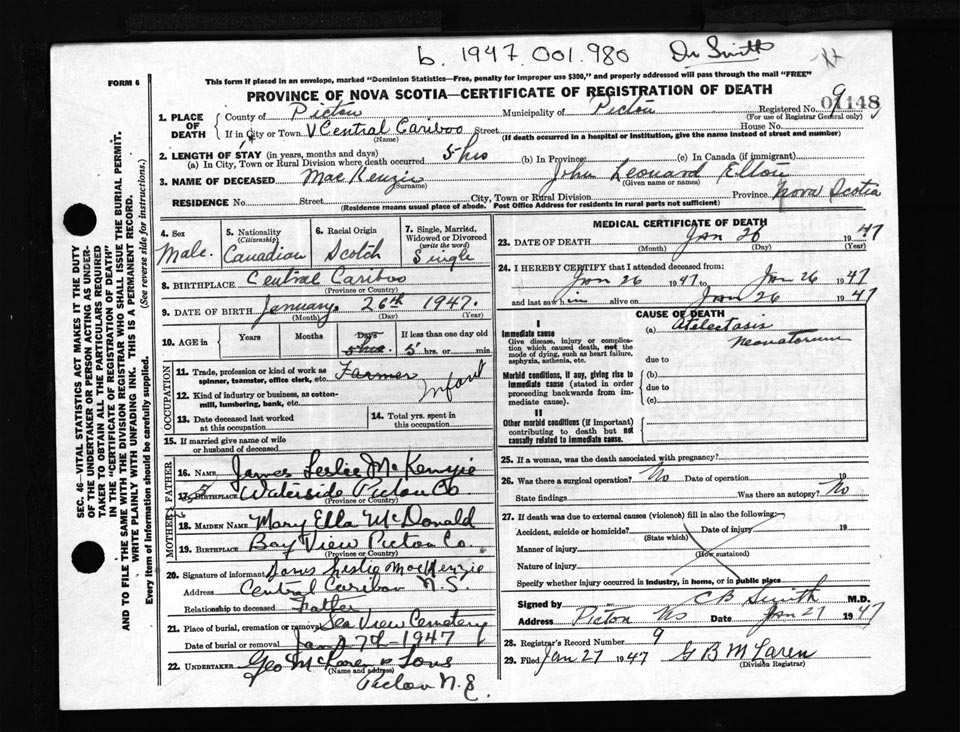 b. 1947.001.980 Dr Smith
FORM 6
This form if placed in an envelope, marked "Dominion Statistics—Free, penalty for improper use $300," and properly addressed will pass through the mail "FREE"
PROVINCE OF NOVA SCOTIA—CERTIFICATE OF REGISTRATION OF DEATH
1. PLACE OF DEATH County of Pictou Municipality of Pictou Registered No. 9 01148
(For use of Registrar General only)
If in City or Town Central Cariboo Street House No.
(Name) (If death occurred in a hospital or institution, give the name instead of street and number)
2. LENGTH OF STAY (in years, months and days)
(a) In City, Town or Rural Division where death occurred 5 hrs (b) In Province (c) In Canada (if immigrant)
3. NAME OF DECEASED MacKenzie John Leonard Elton
(Surname) (Given name or names)
RESIDENCE No. Street City, Town or Rural Division Province Nova Scotia
(Residence means usual place of abode. Post Office Address for residents in rural parts not sufficient)
4. Sex Male.
5. Nationality (Citizenship) Canadian
6. Racial Origin Scotch
7. Single, Married, Widowed or Divorced (write the word) Single
8. BIRTHPLACE Central Cariboo
(Province or Country)
9. DATE OF BIRTH January 26th 1947.
(Month) (Day) (Year)
10. AGE in Years Months Days 5 hrs If less than one day old 5 hrs. or min.
OCCUPATION
11. Trade, profession or kind of work as spinner, teamster, office clerk, etc. Farmer
Infant
12. Kind of industry or business, as cotton-mill, lumbering, bank, etc.
13. Date deceased last worked at this occupation
14. Total yrs. spent in this occupation
15. If married give name of wife or husband of deceased
FATHER
16. NAME James Leslie McKenzie
17. BIRTHPLACE Waterside Pictou Co
(Province or Country)
MOTHER
18. MAIDEN NAME Mary Ella McDonald
19. BIRTHPLACE Bay View Pictou Co.
(Province or Country)
20. Signature of informant James Leslie MacKenzie
Address Central Caribou N.S.
Relationship to deceased Father
21. Place of burial, cremation or removal Sea View Cemetery
Date of burial or removal Jan 27th 1947
22. UNDERTAKER Geo McLaren & Sons
(Name and address)
Pictou N.S.
MEDICAL CERTIFICATE OF DEATH
23. DATE OF DEATH Jan 26 1947
(Month) (Day) (Year)
24. I HEREBY CERTIFY that I attended deceased from:
Jan 26 1947 to Jan 26 1947
and last saw him alive on Jan 26 1947
CAUSE OF DEATH
I
Immediate cause
Give disease, injury or complication which caused death, not the mode of dying, such as heart failure, asphyxia, asthenia, etc.
(a) Atelectasis Neonatorum
due to
Morbid conditions, if any, giving rise to immediate cause (stated in order proceeding backwards from immediate cause).
(b)
due to
(c)
II
Other morbid conditions (if important) contributing to death but not causally related to immediate cause.
25. If a woman, was the death associated with pregnancy?
26. Was there a surgical operation? No Date of operation 19
State findings Was there an autopsy? No
27. If death was due to external causes (violence) fill in also the following:
Accident, suicide or homicide? Date of injury 19
(State which)
Manner of injury
(How sustained)
Nature of injury
Specify whether injury occurred in industry, in home, or in public place
Signed by C B Smith M.D.
Address Pictou NS Date Jan 27 1947
28. Registrar's Record Number 9
29. Filed Jan 27 1947 G B McLaren
(Division Registrar)
SEC. 46—VITAL STATISTICS ACT MAKES IT THE DUTY OF THE UNDERTAKER OR PERSON ACTING AS UNDERTAKER TO OBTAIN ALL THE PARTICULARS REQUIRED IN THE "CERTIFICATE OF REGISTRATION OF DEATH" AND TO FILE THE SAME WITH THE DIVISION REGISTRAR WHO SHALL ISSUE THE BURIAL PERMIT.
WRITE PLAINLY WITH UNFADING INK. THIS IS A PERMANENT RECORD.
Every Item of Information should be carefully supplied. (See reverse side for instructions.)